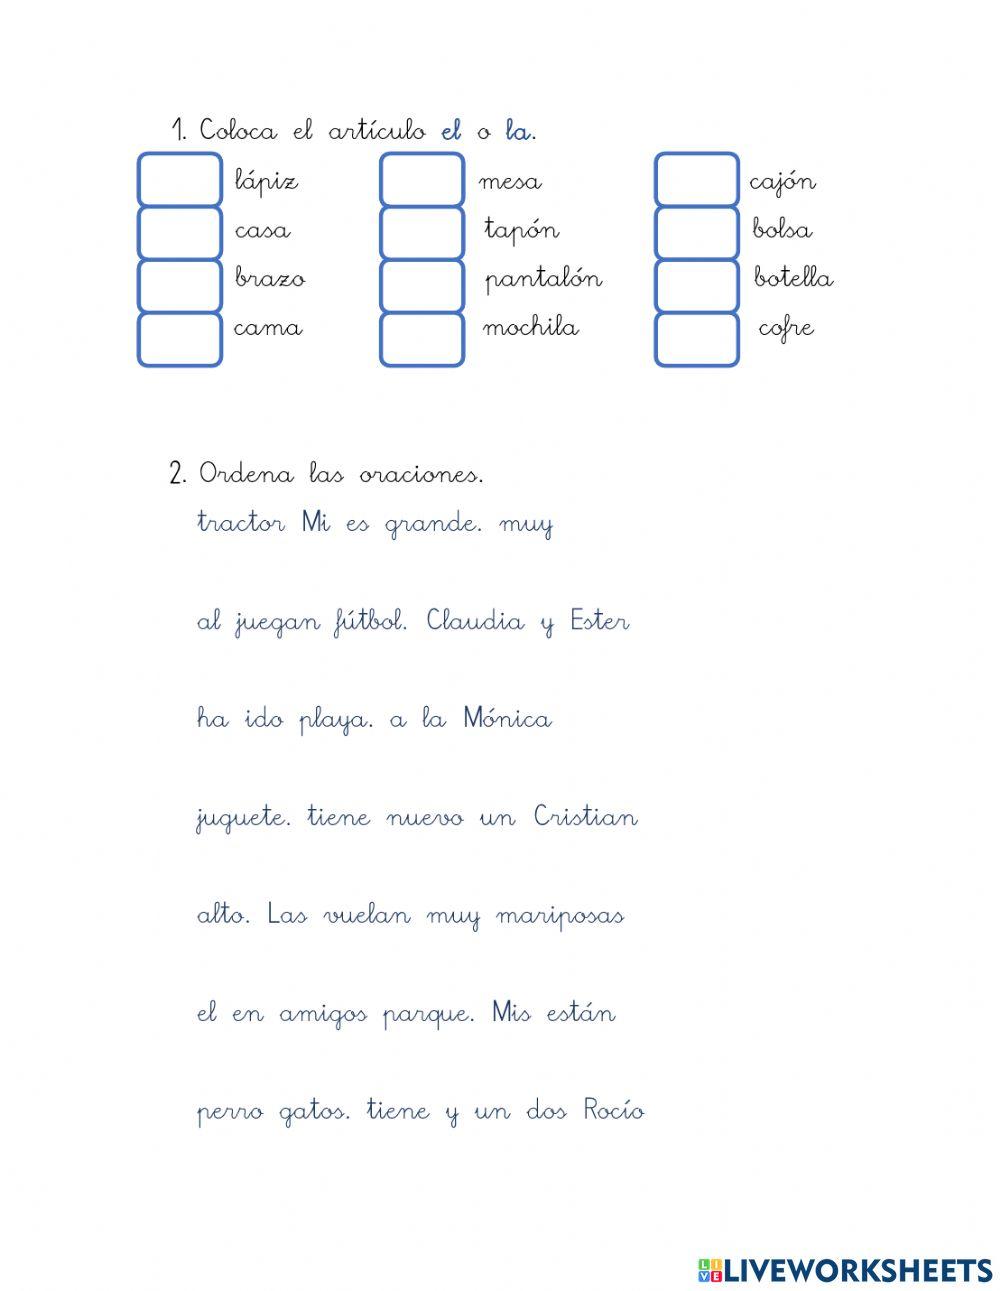 1. Coloca el artículo el o la.
lápiz mesa cajón
casa tapón bolsa
brazo pantalón botella
cama mochila cofre
2. Ordena las oraciones.
tractor Mi es grande. muy
al juegan fútbol. Claudia y Ester
ha ido playa. a la Mónica
juguete. tiene nuevo un Cristian
alto. Las vuelan muy mariposas
el en amigos parque. Mis están
perro gatos. tiene y un dos Rocío
LIVE LIVEWORKSHEETS